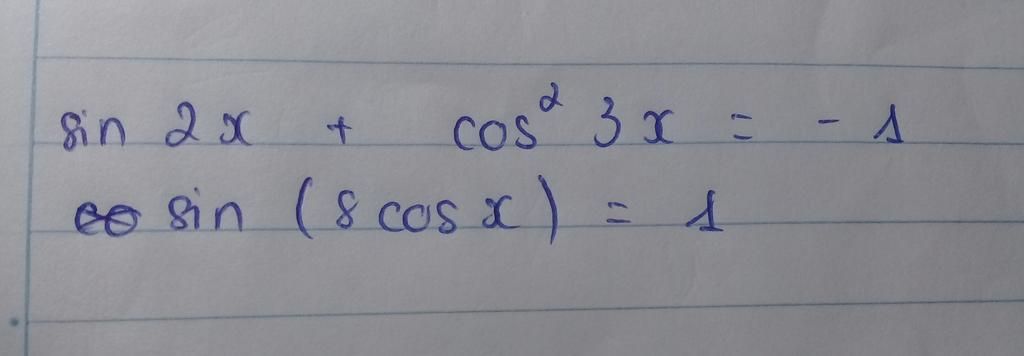 sin 2x + cos² 3x = - 1
sin (8 cos x) = 1